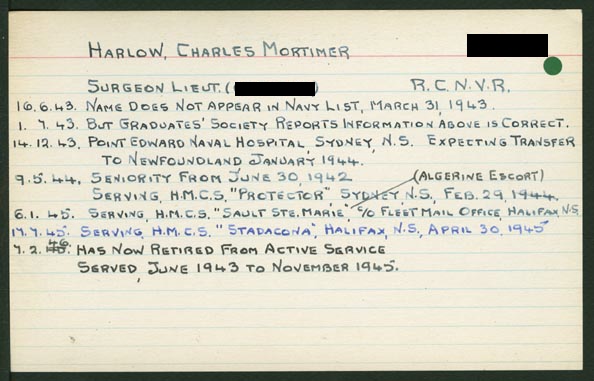 HARLOW, CHARLES MORTIMER
SURGEON LIEUT. ( ) R.C.N.V.R.
16.6.43. NAME DOES NOT APPEAR IN NAVY LIST, MARCH 31, 1943.
1. 7. 43. BUT GRADUATES' SOCIETY REPORTS INFORMATION ABOVE IS CORRECT.
14.12.43, POINT EDWARD NAVAL HOSPITAL, SYDNEY, N.S. EXPECTING TRANSFER
TO NEWFOUNDLAND JANUARY 1944.
9.5.44, SENIORITY FROM JUNE 30, 1942 (ALGERINE ESCORT)
SERVING, H.M.C.S, "PROTECTOR", SYDNEY N.S, FEB. 29, 1944.
6.1. 45. SERVING, H.M.C.S. "SAULT STE. MARIE", C/O FLEET MAIL OFFICE, HALIFAX, N.S.
17.7.45. SERVING, H.M.C.S. "STADACONA", HALIFAX, N.S., APRIL 30, 1945
7. 2. 46. HAS NOW RETIRED FROM ACTIVE SERVICE
SERVED, JUNE 1943 TO NOVEMBER 1945.